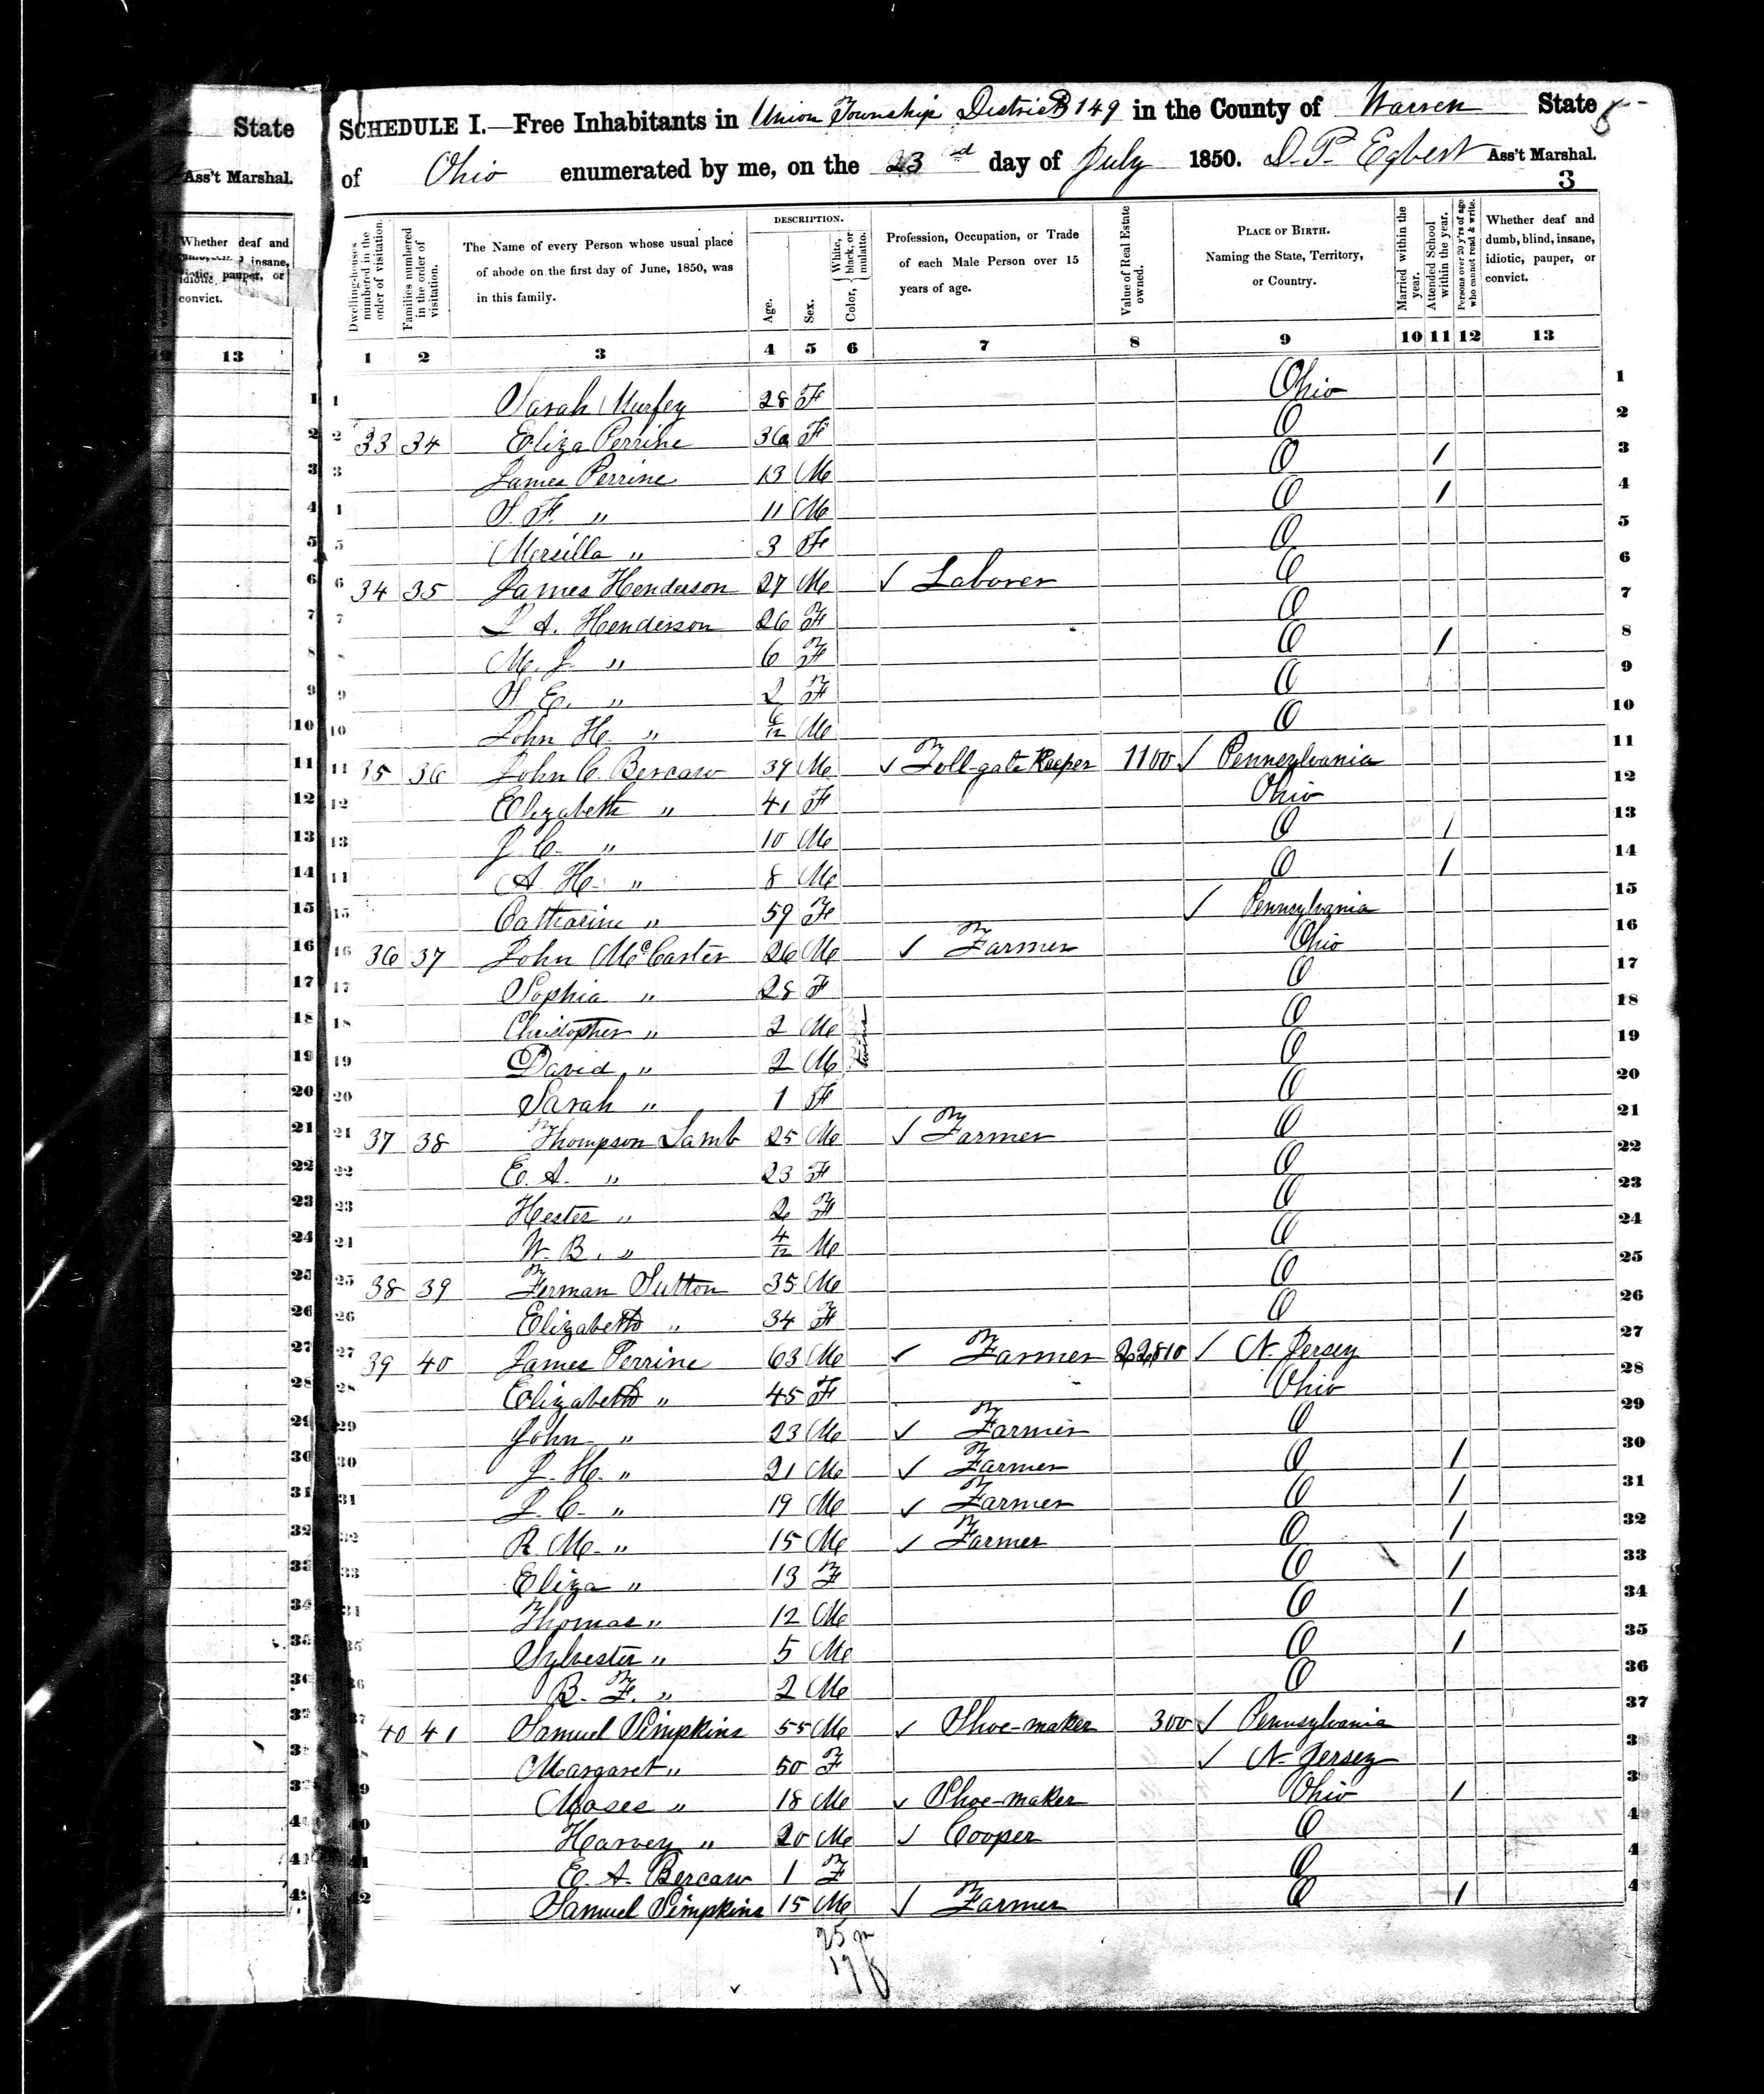 State
Ass't Marshal.
Whether deaf and
insane,
idiotic, pauper, or
convict.
13
SCHEDULE I.—Free Inhabitants in Union Township District 149 in the County of Warren State
of Ohio enumerated by me, on the 23rd day of July 1850. D. P. Egbert Ass't Marshal.
3
Dwelling-houses numbered in the order of visitation.
Families numbered in the order of visitation.
The Name of every Person whose usual place of abode on the first day of June, 1850, was in this family.
DESCRIPTION.
Age.
Sex.
Color, White, black, or mulatto.
Profession, Occupation, or Trade of each Male Person over 15 years of age.
Value of Real Estate owned.
PLACE OF BIRTH. Naming the State, Territory, or Country.
Married within the year.
Attended School within the year.
Persons over 20 y'rs of age who cannot read & write.
Whether deaf and dumb, blind, insane, idiotic, pauper, or convict.
1 2 3 4 5 6 7 8 9 10 11 12 13
1 Sarah Murfey 28 F Ohio 1
2 33 34 Eliza Perrine 36 F O 2
3 James Perrine 13 M O / 3
4 S. F. " 11 M O / 4
5 Mersilla " 3 F O 5
6 34 35 James Henderson 27 M ✓ Laborer O 6
7 L A. Henderson 26 F O 7
8 M. J. " 6 F O / 8
9 S E. " 2 F O 9
10 John H. " 6/12 M O 10
11 35 36 John C. Bercaw 39 M ✓ Toll-gate Keeper 1100 ✓ Pennsylvania 11
12 Elizabeth " 41 F Ohio 12
13 J. C. " 10 M O / 13
14 A. H. " 8 M O / 14
15 Catharine " 59 F ✓ Pennsylvania 15
16 36 37 John McCarter 26 M ✓ Farmer Ohio 16
17 Sophia " 28 F O 17
18 Christopher " 2 M twins O 18
19 David " 2 M O 19
20 Sarah " 1 F O 20
21 37 38 Thompson Lamb 25 M ✓ Farmer O 21
22 E. A. " 23 F O 22
23 Hester " 2 F O 23
24 W. B. " 4/12 M O 24
25 38 39 Ferman Sutton 35 M O 25
26 Elizabeth " 34 F O 26
27 39 40 James Perrine 63 M ✓ Farmer ✓ N. Jersey 27
28 Elizabeth " 45 F Ohio 28
29 John " 23 M ✓ Farmer O 29
30 J. H. " 21 M ✓ Farmer O / 30
31 J. C. " 19 M ✓ Farmer O / 31
32 R. M. " 15 M ✓ Farmer O / 32
33 Eliza " 13 F O / 33
34 Thomas " 12 M O / 34
35 Sylvester " 5 M O / 35
36 B. F. " 2 M O 36
37 40 41 Samuel Simpkins 55 M ✓ Shoe-maker 300 ✓ Pennsylvania 37
Margaret " 50 F ✓ N. Jersey
Moses " 18 M ✓ Shoe-maker Ohio /
Harvey " 20 M ✓ Cooper O
E. A. Bercaw 1 F O
Samuel Simpkins 15 M ✓ Farmer O /
25 m